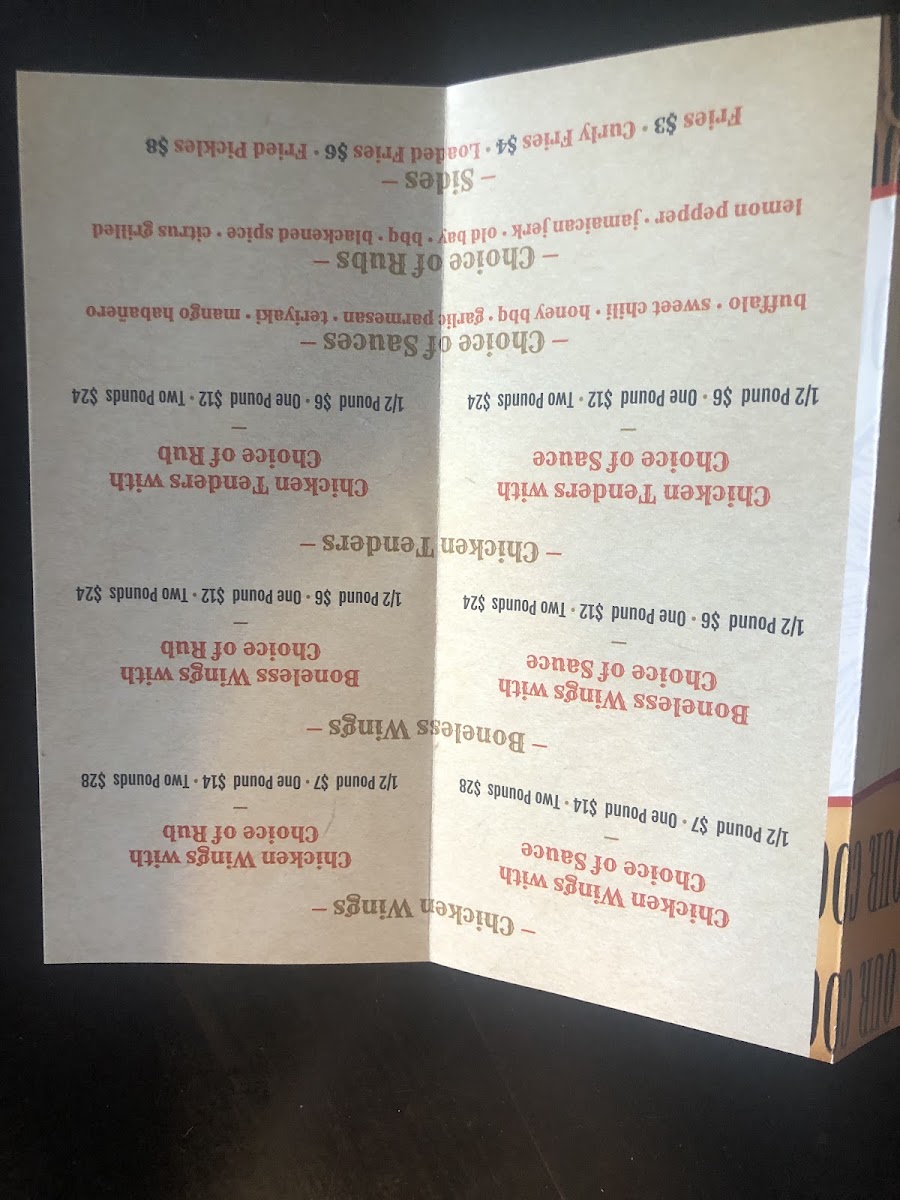 – Chicken Wings –
Chicken Wings with
Choice of Sauce
–
1/2 Pound $7 • One Pound $14 • Two Pounds $28
Chicken Wings with
Choice of Rub
–
1/2 Pound $7 • One Pound $14 • Two Pounds $28
– Boneless Wings –
Boneless Wings with
Choice of Sauce
–
1/2 Pound $6 • One Pound $12 • Two Pounds $24
Boneless Wings with
Choice of Rub
–
1/2 Pound $6 • One Pound $12 • Two Pounds $24
– Chicken Tenders –
Chicken Tenders with
Choice of Sauce
–
1/2 Pound $6 • One Pound $12 • Two Pounds $24
Chicken Tenders with
Choice of Rub
–
1/2 Pound $6 • One Pound $12 • Two Pounds $24
– Choice of Sauces –
buffalo • sweet chili • honey bbq • garlic parmesan • teriyaki • mango habañero
– Choice of Rubs –
lemon pepper • jamaican jerk • old bay • bbq • blackened spice • citrus grilled
– Sides –
Fries $3 • Curly Fries $4 • Loaded Fries $6 • Fried Pickles $8
OUR
OUR